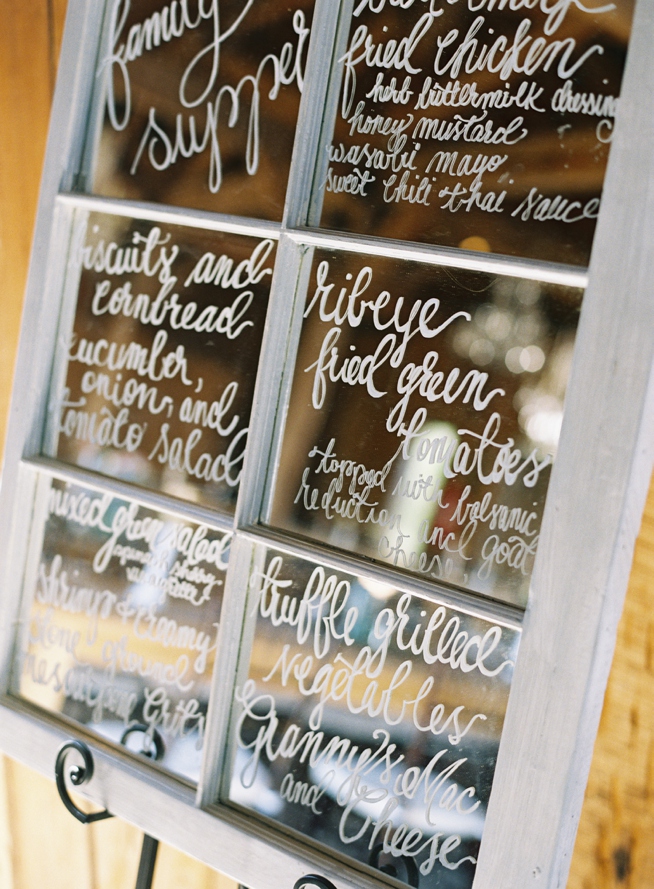 family
supper
fried chicken
herb buttermilk dressing
honey mustard
wasabi mayo
sweet chili thai sauce
biscuits and
cornbread
cucumber,
onion, and
tomato salad
ribeye
fried green
tomatoes
topped with balsamic
reduction and goat
cheese
mixed green salad
shrimp & creamy
stone ground
grits
truffle grilled
vegetables
Granny's Mac
and Cheese